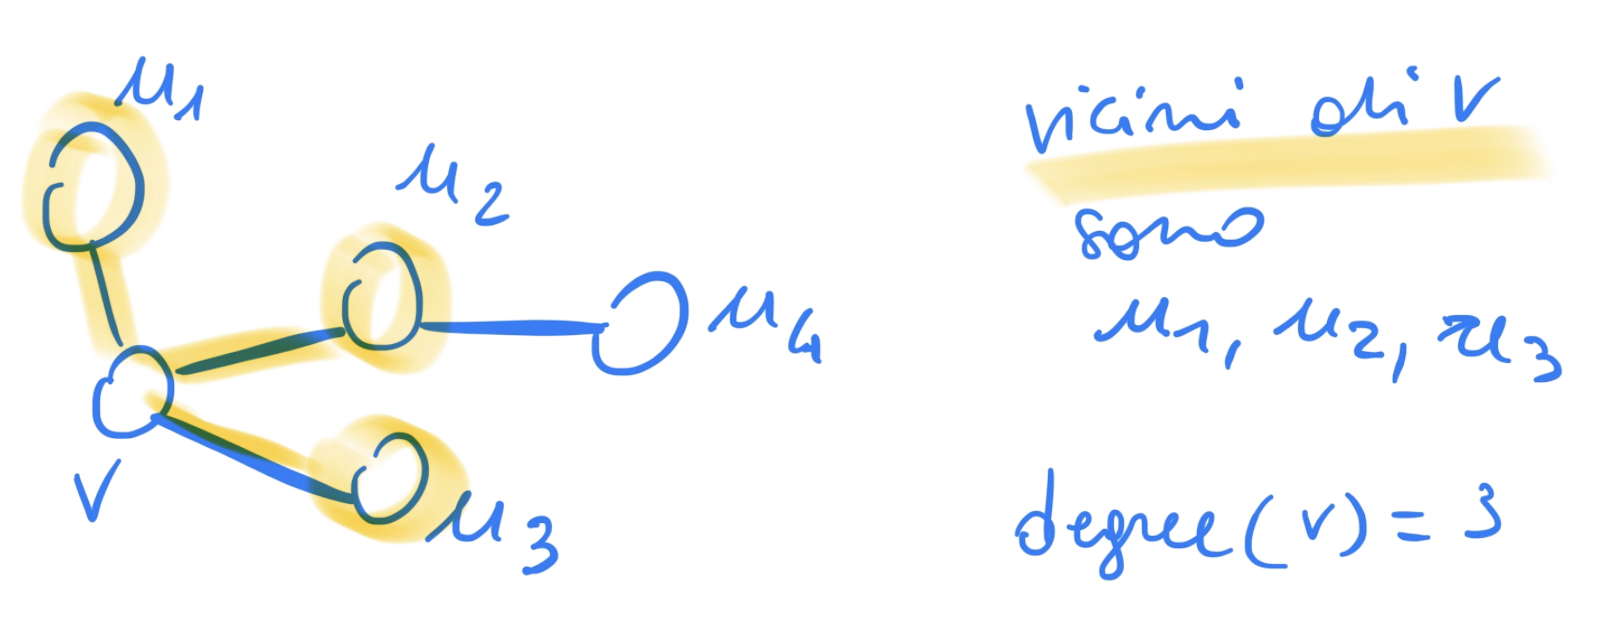 u1
u2
u4
v
u3
vicini di v
sono
u1, u2, u3
degree(v) = 3